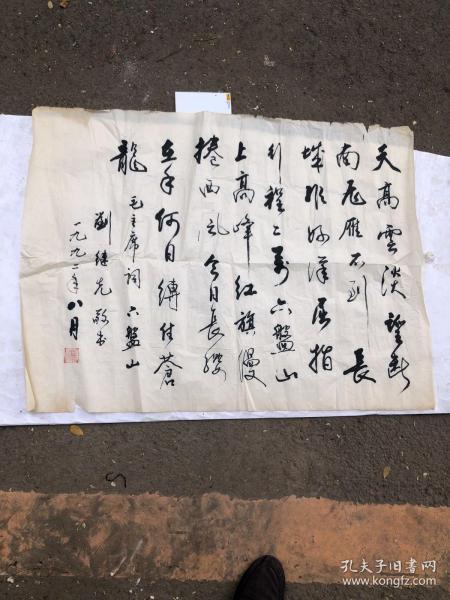 天高雲淡望断
南飛雁不到長
城非好漢屈指
行程二萬六盤山
上高峰紅旗漫
捲西风今日長纓
在手何日縛住蒼
龍
毛主席詞六盤山
劉继先敬书
一九九二年八月
孔夫子旧书网
www.kongfz.com